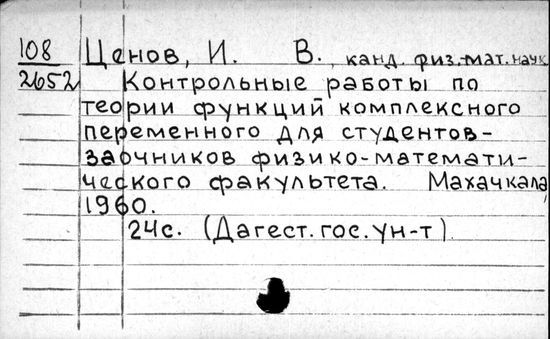 108 Ценов, И. В., канд. физ.-мат. наук
2652 Контрольные работы по
теории функций комплексного
переменного для студентов-
заочников физико-математи-
ческого факультета. Махачкала,
1960.
24с. (Дагест. гос. ун-т).